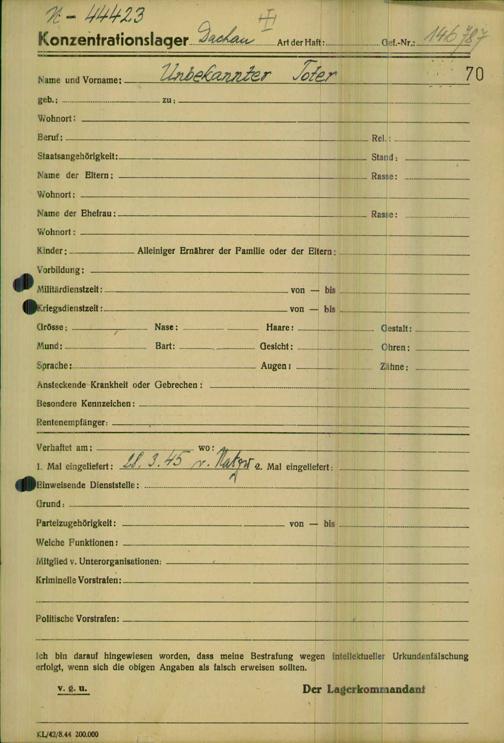 N - 44423
Konzentrationslager Dachau Art der Haft: Gef.-Nr.: 146787
Name und Vorname: Unbekannter Toter 70
geb.: zu:
Wohnort:
Beruf: Rel.:
Staatsangehörigkeit: Stand:
Name der Eltern: Rasse:
Wohnort:
Name der Ehefrau: Rasse:
Wohnort:
Kinder: Alleiniger Ernährer der Familie oder der Eltern:
Vorbildung:
Militärdienstzeit: von — bis
Kriegsdienstzeit: von — bis
Grösse: Nase: Haare: Gestalt:
Mund: Bart: Gesicht: Ohren:
Sprache: Augen: Zähne:
Ansteckende Krankheit oder Gebrechen:
Besondere Kennzeichen:
Rentenempfänger:
Verhaftet am: wo:
1. Mal eingeliefert: 28. 3. 45 v. Natzw. 2. Mal eingeliefert:
Einweisende Dienststelle:
Grund:
Parteizugehörigkeit: von — bis
Welche Funktionen:
Mitglied v. Unterorganisationen:
Kriminelle Vorstrafen:
Politische Vorstrafen:
Ich bin darauf hingewiesen worden, dass meine Bestrafung wegen intellektueller Urkundenfälschung
erfolgt, wenn sich die obigen Angaben als falsch erweisen sollten.
v. g. u. Der Lagerkommandant
KL/42/8.44 200.000